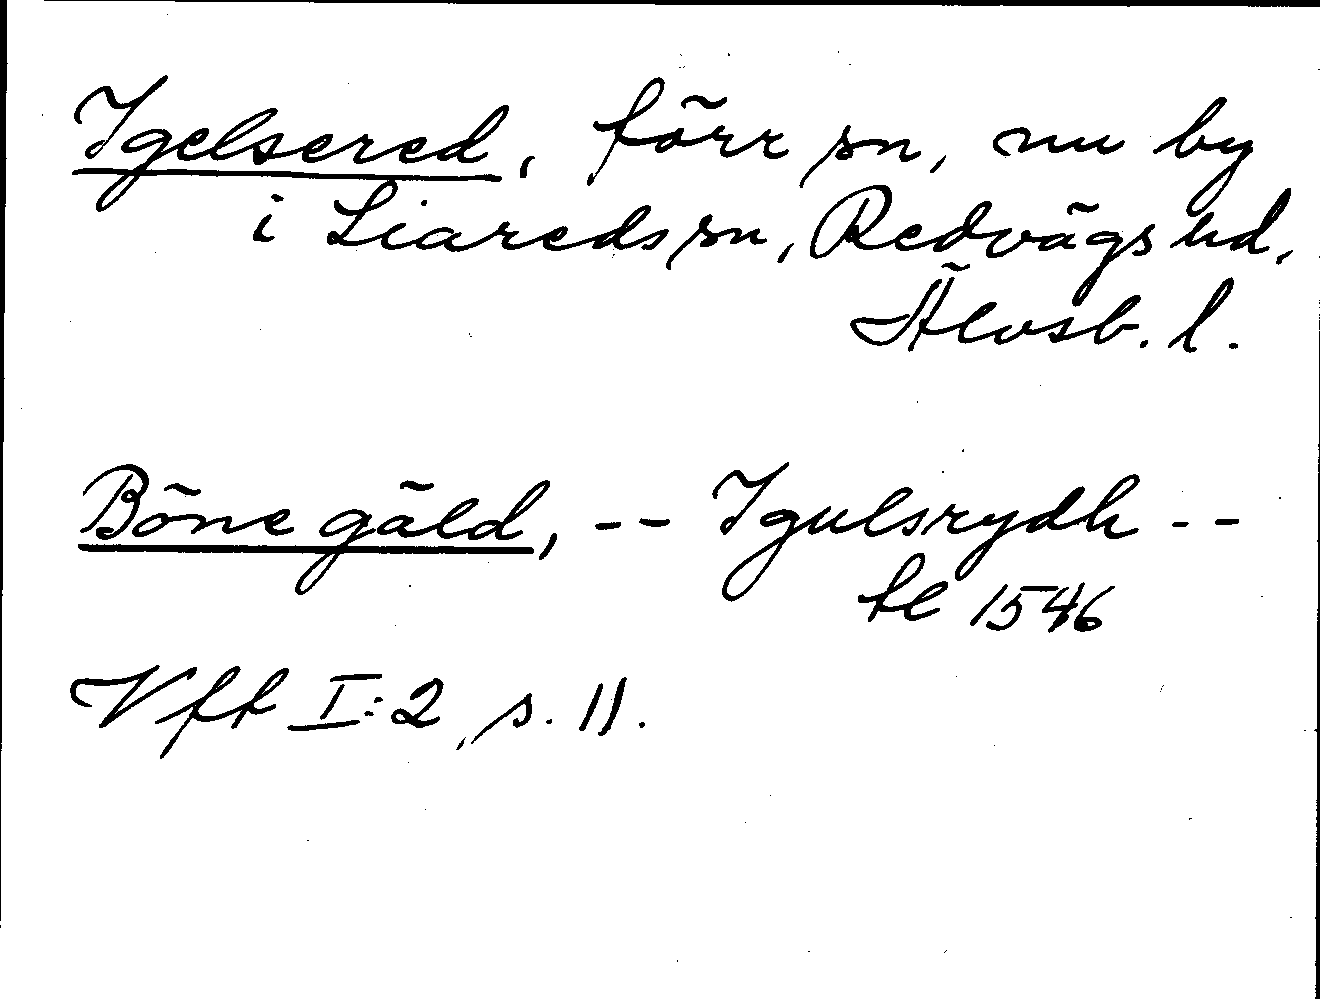 Igelsered, förr sn, nu by
i Liareds sn, Redvägs hd,
Älvsb. l.
Böne gäld, -- Igulsrydh --
fl 1546
Vff I:2, s. 11.